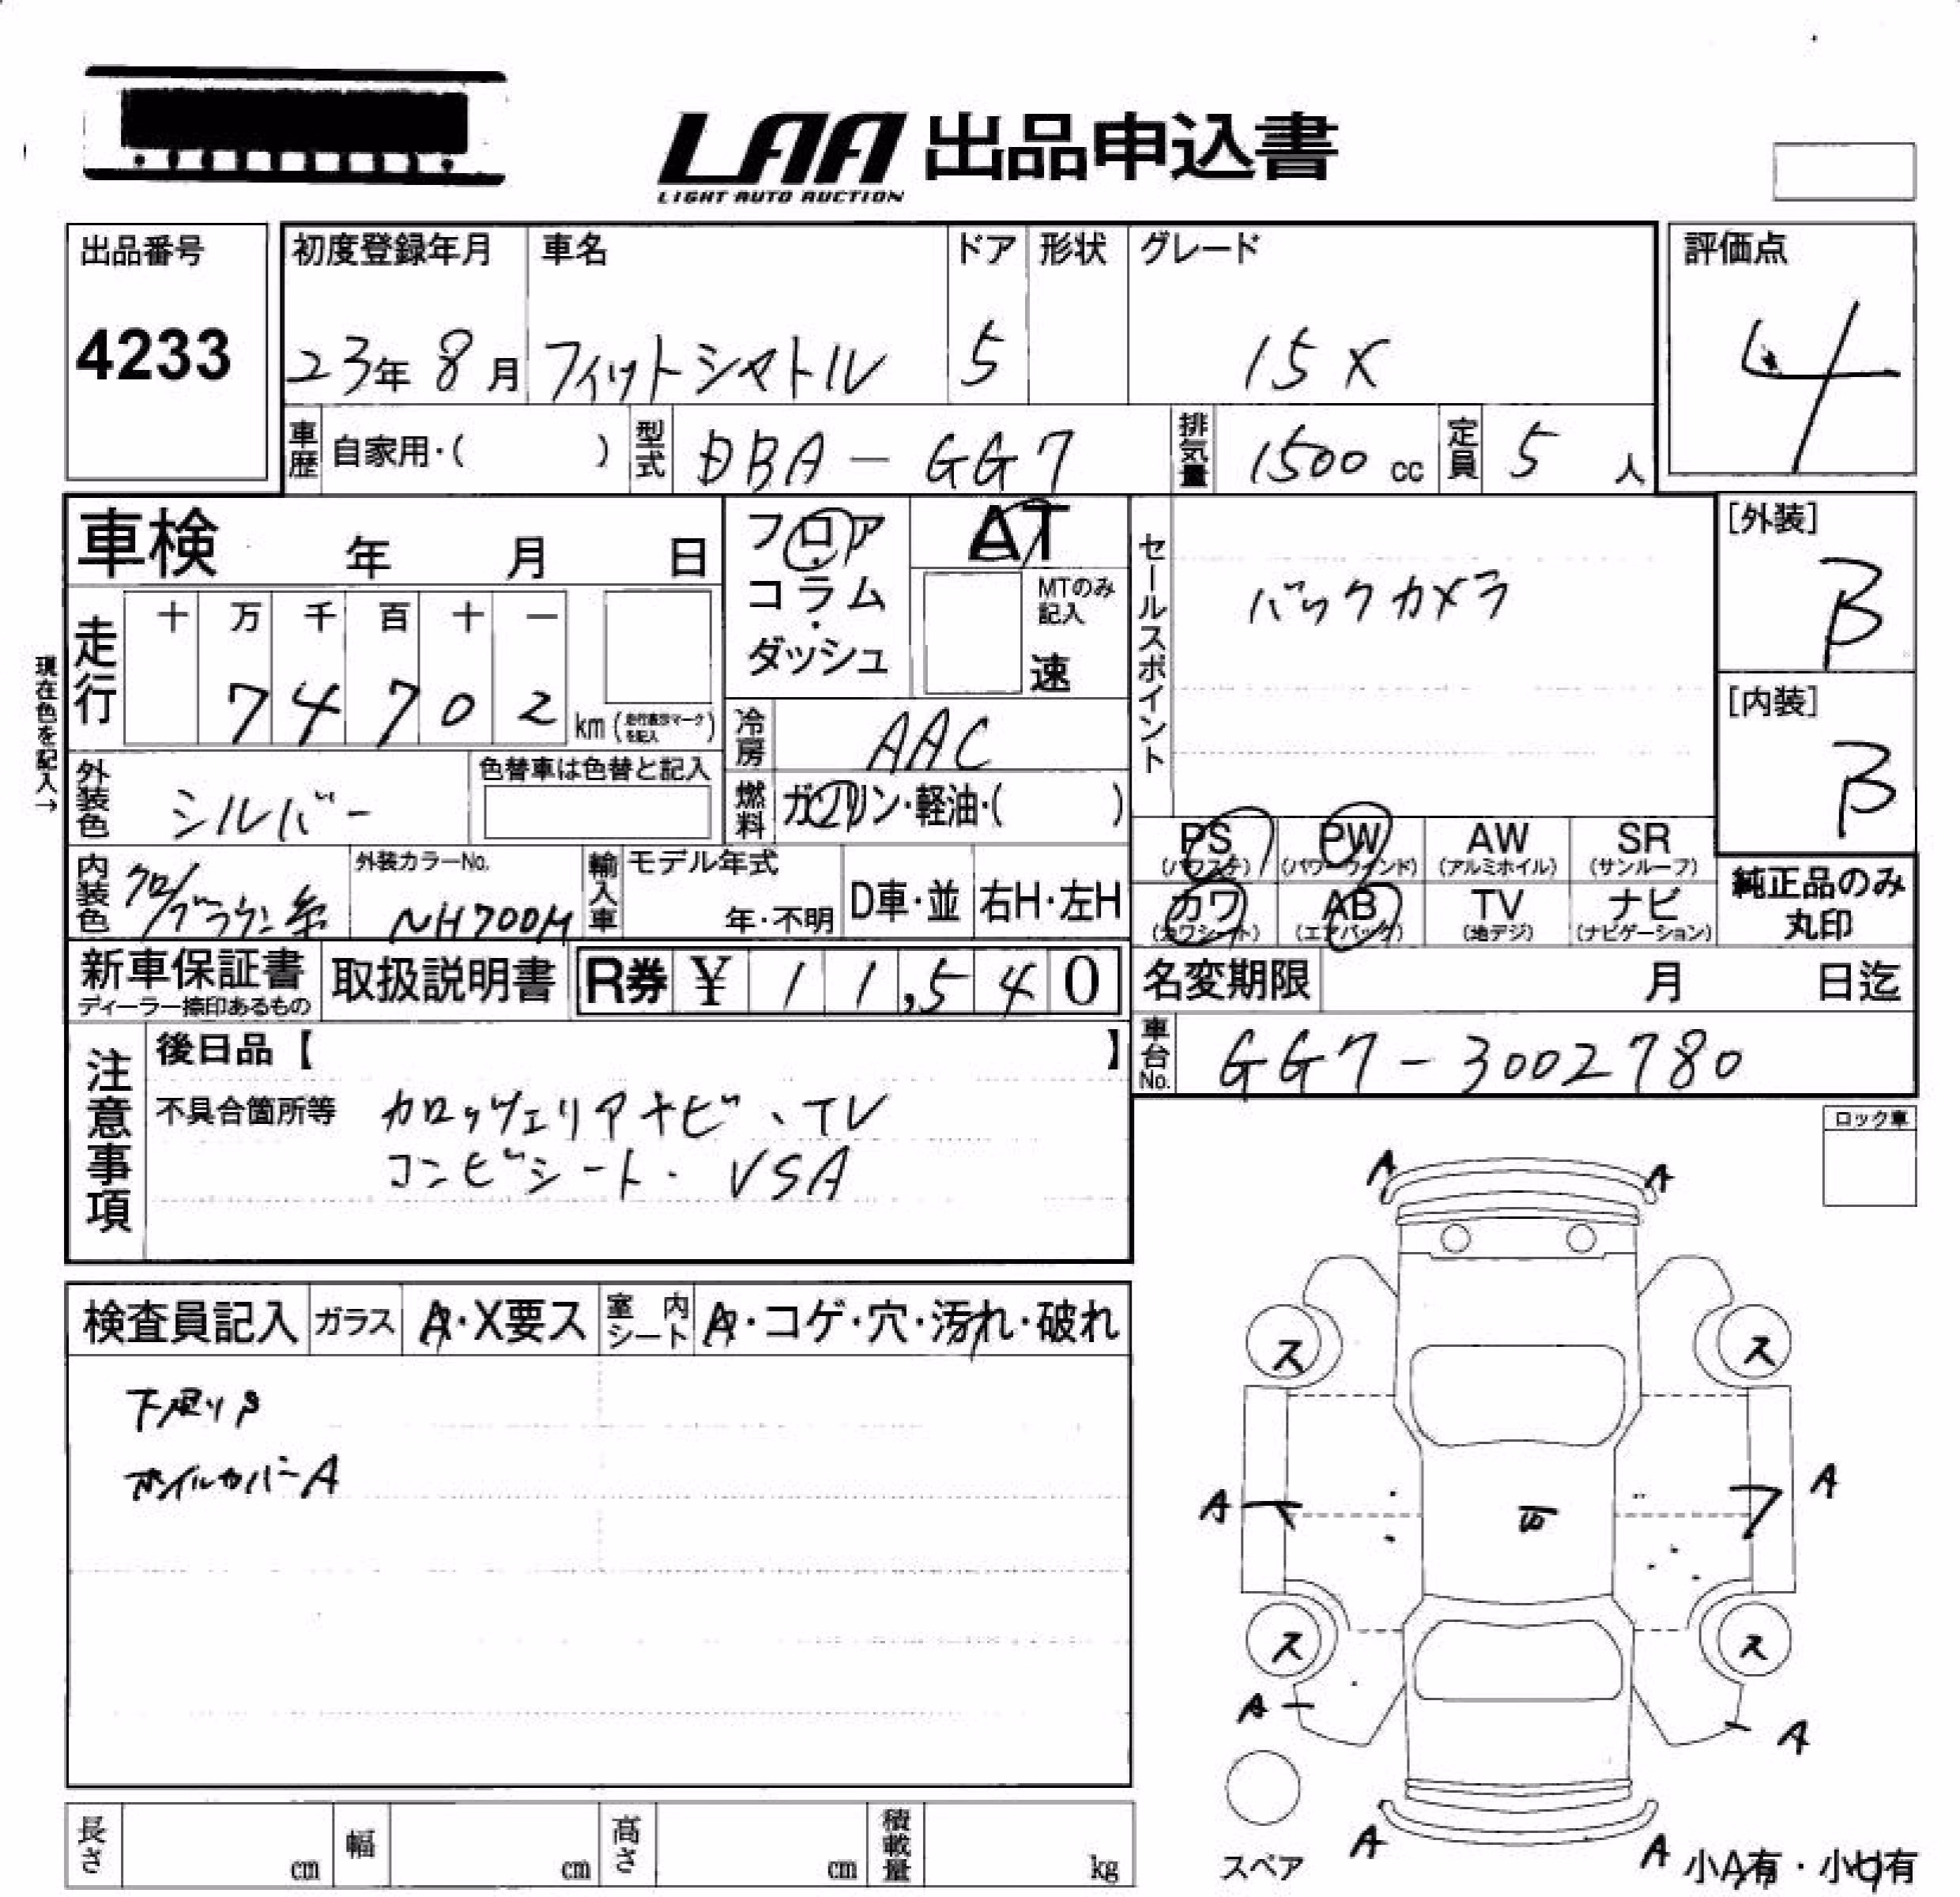 LAA 出品申込書
LIGHT AUTO AUCTION
出品番号 初度登録年月 車名 ドア 形状 グレード 評価点
4233 23年 8月 フィットシャトル 5 15X 4
車歴 自家用・( ) 型式 DBA-GG7 排気量 1500 cc 定員 5 人
車検 年 月 日 フロア・コラム・ダッシュ AT
MTのみ記入
速
セールスポイント バックカメラ
[外装] B
[内装] B
現在色を記入→
走行 十 万 千 百 十 一
7 4 7 0 2 km (走行表示マークを記入)
冷房 AAC
外装色 シルバー 色替車は色替と記入
燃料 ガソリン・軽油・( )
PS (パワステ) PW (パワーウィンド) AW (アルミホイル) SR (サンルーフ)
カワ (カワシート) AB (エアバック) TV (地デジ) ナビ (ナビゲーション)
純正品のみ丸印
内装色 クロ/ブラウン系 外装カラーNo. NH700M 輸入車 モデル年式 年・不明 D車・並 右H・左H
新車保証書 ディーラー捺印あるもの 取扱説明書 R券 ¥ 11,540 名変期限 月 日迄
車台No. GG7-3002780
注意事項 後日品【 】
不具合箇所等 カロッツェリアナビ、TV
コンビシート・VSA
ロック車
検査員記入 ガラス A・X要ス 室内シート A・コゲ・穴・汚れ・破れ
ホイルカバーA
A A
ス ス
A A
ス ス
A A
A A
スペア 小A有・小U有
長さ cm 幅 cm 高さ cm 積載量 kg